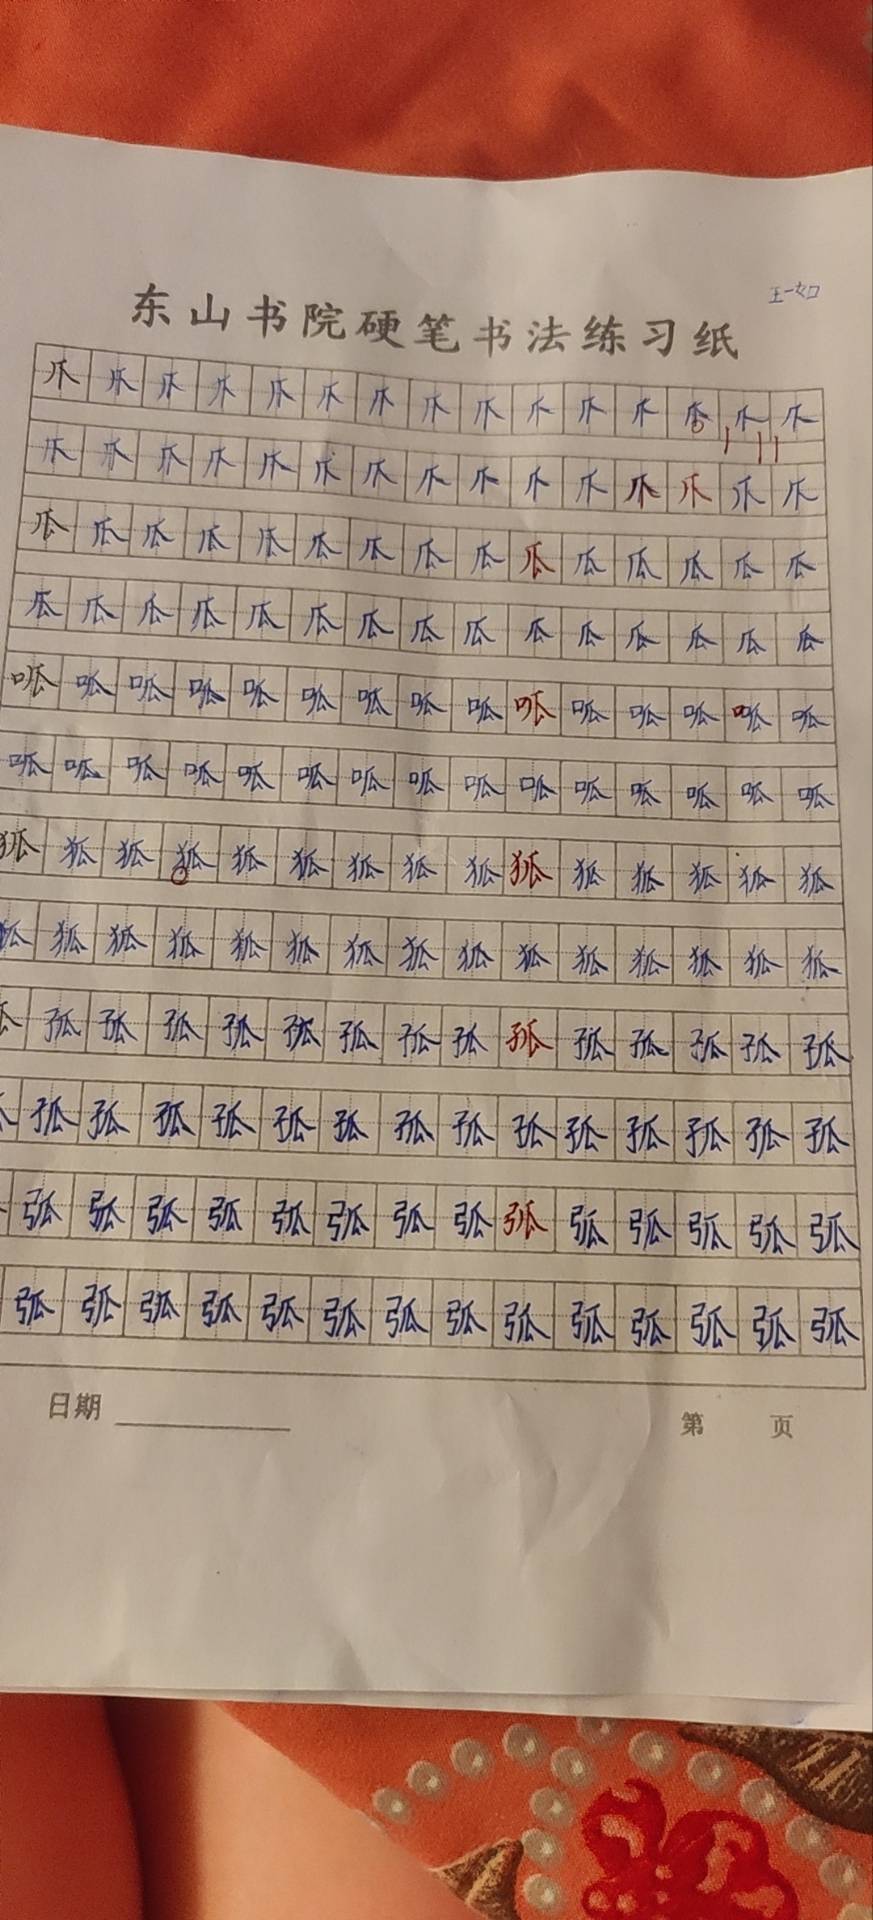 王一如
东山书院硬笔书法练习纸
爪爪爪爪爪爪爪爪爪爪爪爪爪爪爪
爪爪爪爪爪爪爪爪爪爪爪爪爪爪爪
瓜瓜瓜瓜瓜瓜瓜瓜瓜瓜瓜瓜瓜瓜瓜
瓜瓜瓜瓜瓜瓜瓜瓜瓜瓜瓜瓜瓜瓜瓜
呱呱呱呱呱呱呱呱呱呱呱呱呱呱呱
呱呱呱呱呱呱呱呱呱呱呱呱呱呱呱
狐狐狐狐狐狐狐狐狐狐狐狐狐狐狐
狐狐狐狐狐狐狐狐狐狐狐狐狐狐狐
孤孤孤孤孤孤孤孤孤孤孤孤孤孤
孤孤孤孤孤孤孤孤孤孤孤孤孤孤
弧弧弧弧弧弧弧弧弧弧弧弧弧弧
弧弧弧弧弧弧弧弧弧弧弧弧弧弧
日期 第 页